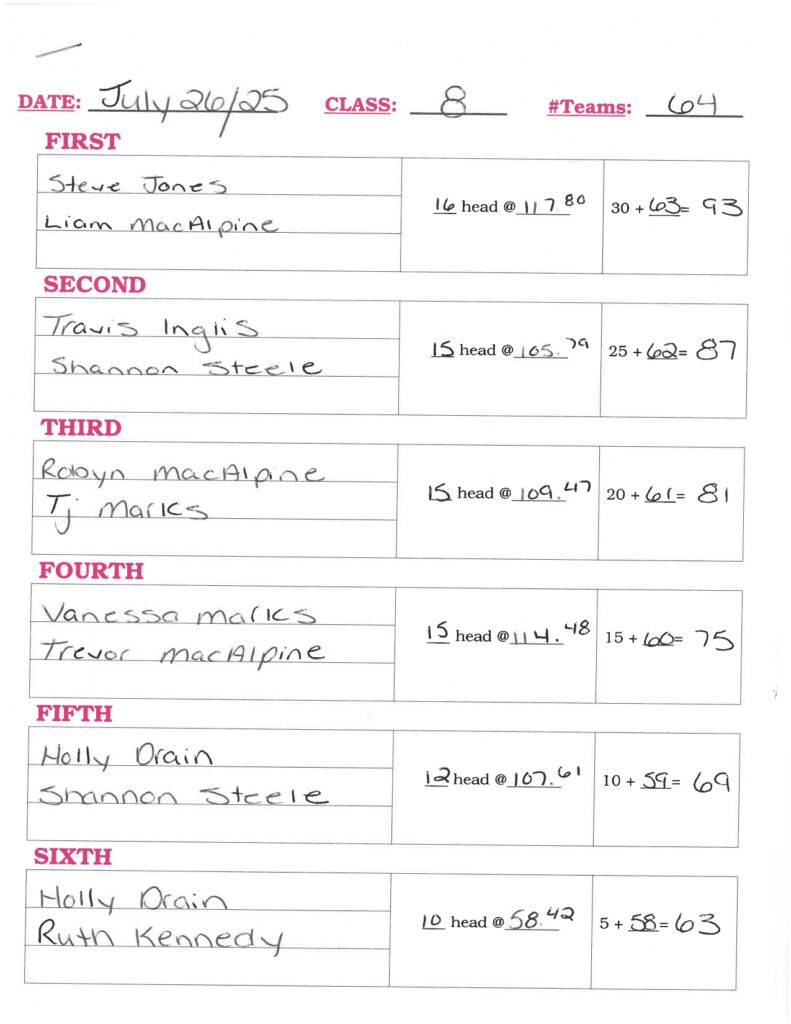 DATE: July 26/25 CLASS: 8 #Teams: 64
FIRST
Steve Jones
Liam MacAlpine
16 head @ 117.80
30 + 63 = 93
SECOND
Travis Inglis
Shannon Steele
15 head @ 105.79
25 + 62 = 87
THIRD
Robyn MacAlpine
Tj Marks
15 head @ 109.47
20 + 61 = 81
FOURTH
Vanessa Marks
Trevor MacAlpine
15 head @ 114.48
15 + 60 = 75
FIFTH
Holly Drain
Shannon Steele
12 head @ 107.61
10 + 59 = 69
SIXTH
Holly Drain
Ruth Kennedy
10 head @ 58.42
5 + 58 = 63